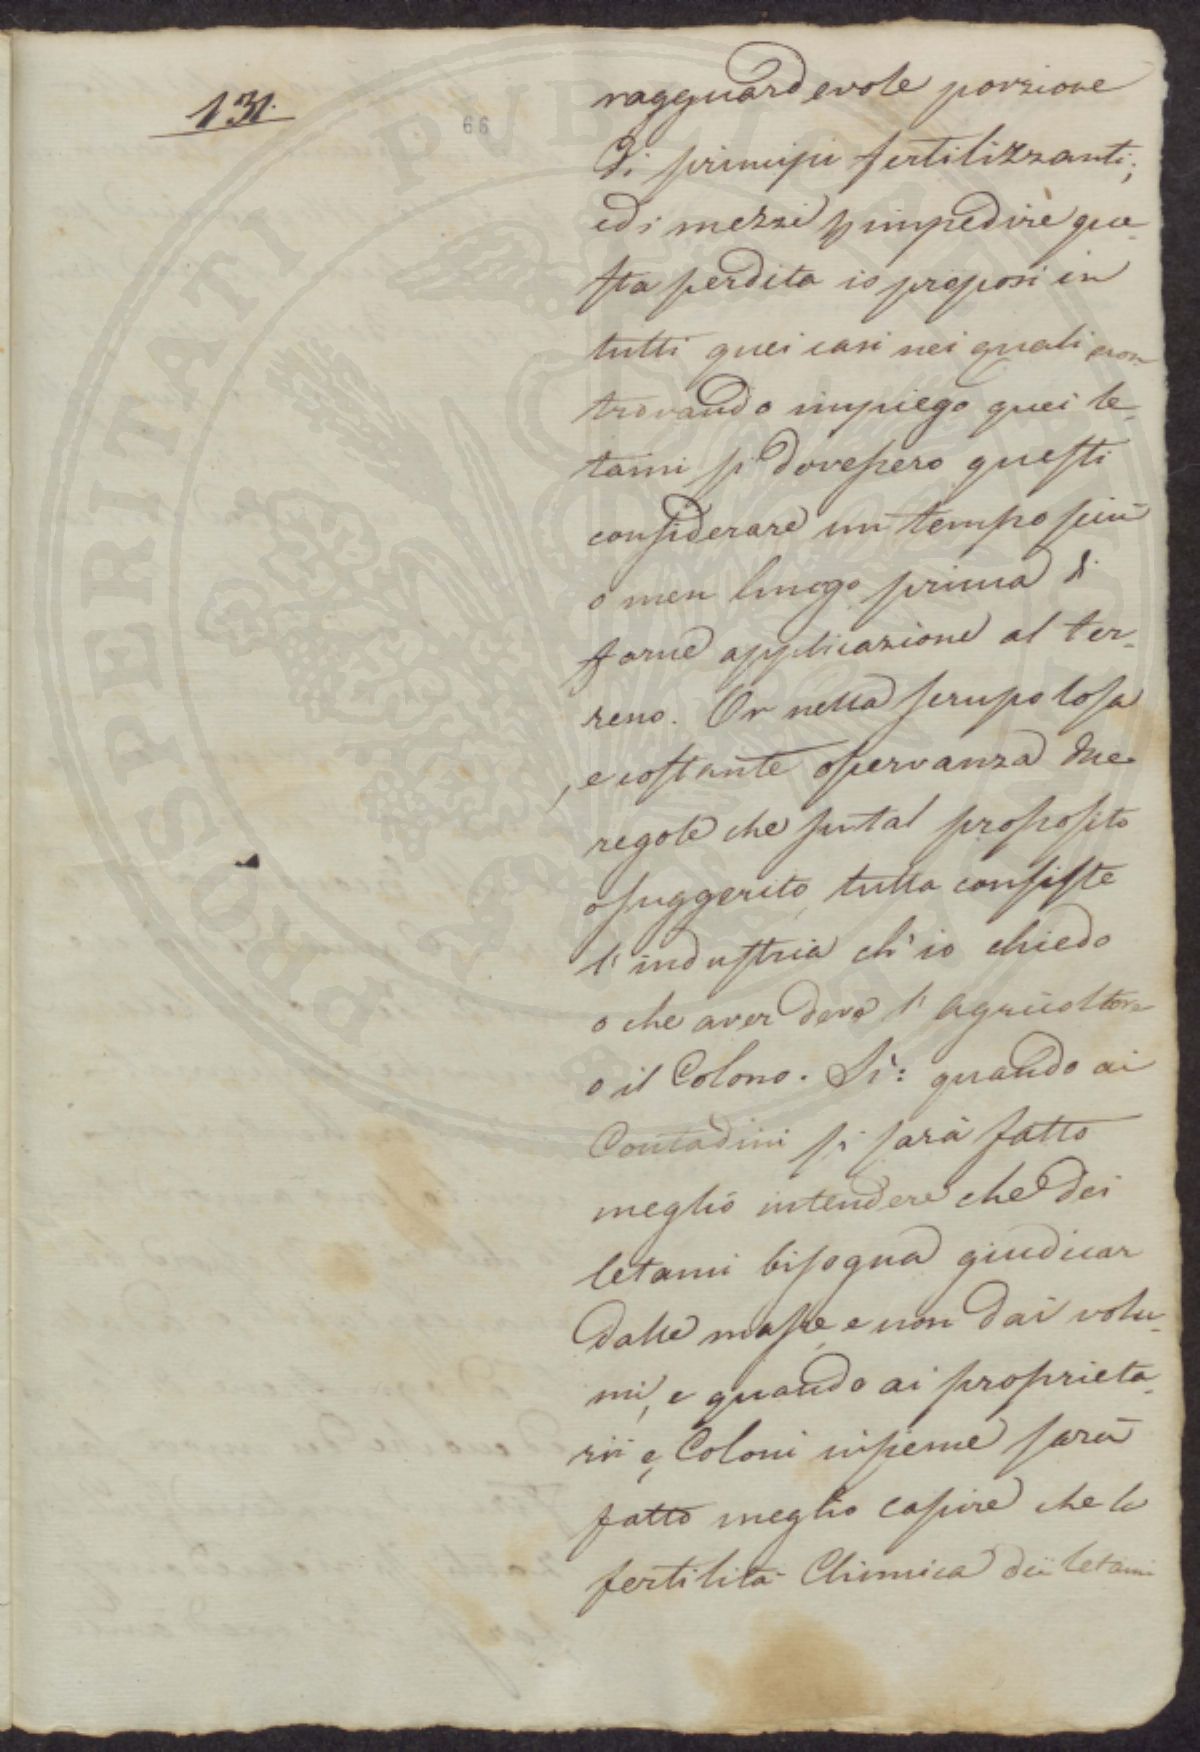 131.
66
ragguardevole porzione
di principi fertilizzanti;
ed i mezzi p impedire que-
sta perdita io proposi in
tutti quei casi nei quali non
trovando impiego quei le-
tami si dovessero questi
considerare un tempo più
o men lungo prima di
farne applicazione al ter-
reno. Or nella scrupolosa
, e costante osservanza due
regole che su tal proposito
o suggerito, tutta consiste
l'industria ch'io chiedo
o che aver deve l'agricoltore
o il Colono. Sì: quando ai
Contadini si sarà fatto
meglio intendere che dei
letami bisogna giudicar
dalle masse, e non dai volu-
mi, e quando ai proprieta-
rii e, Coloni insieme sarà
fatto meglio capire che la
fertilità Chimica dei letami
PROSPERITATI PUBLICAE